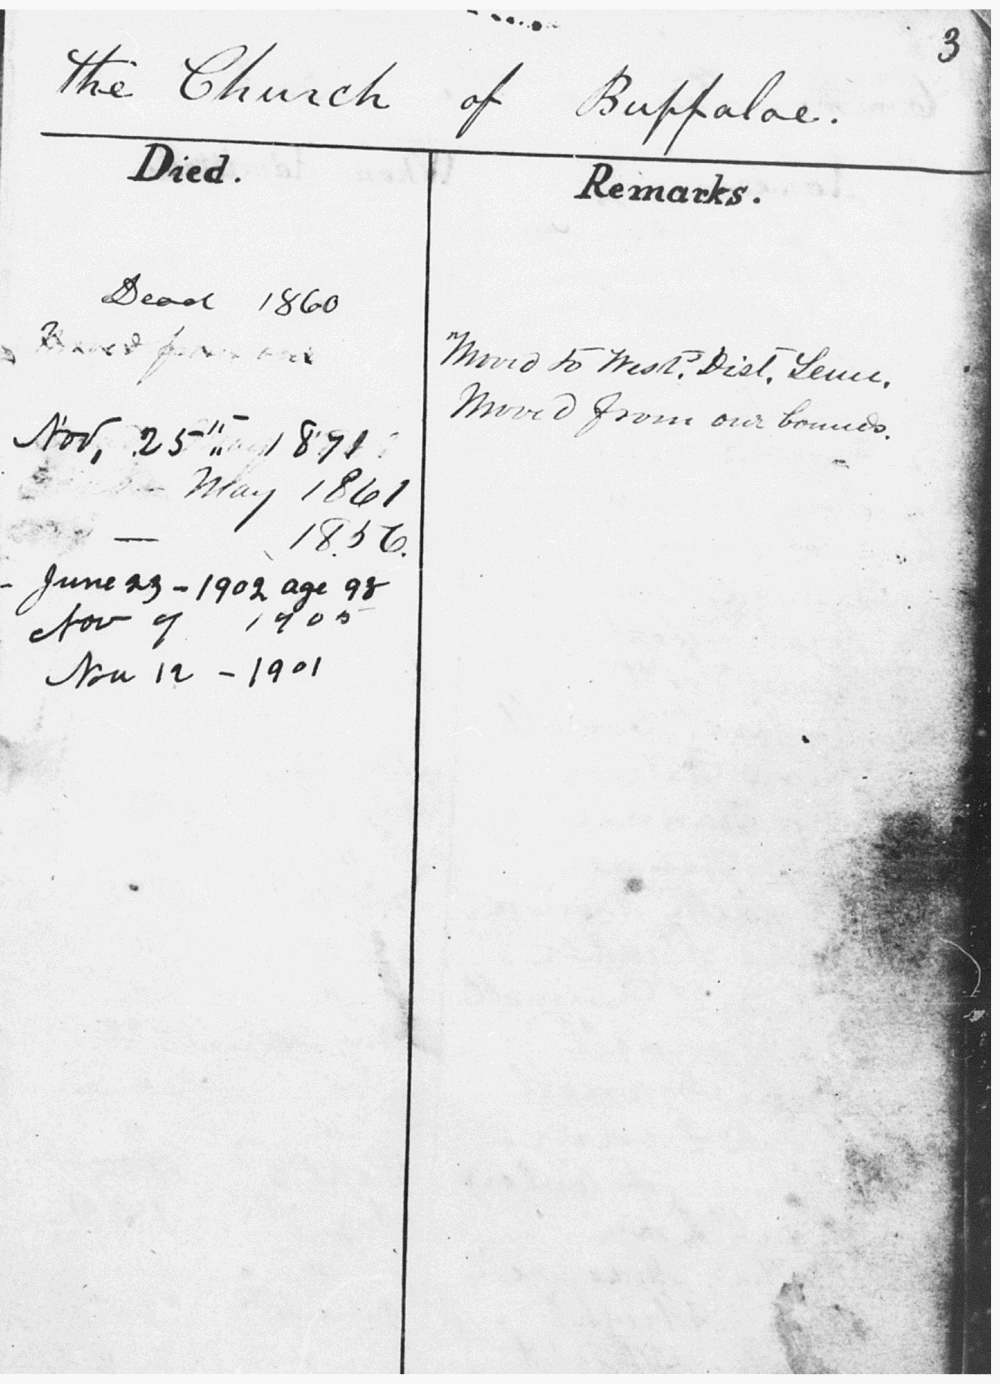 3
the Church of Buffaloe.
Died. Remarks.
Dead 1860
Moved from our
Moved to West. Dist. Tenn.
Moved from our bounds.
Nov, 25" 1871
May 1861
— 1856.
- June 23 - 1902 age 98
Nov 9 1905
Nov 12 - 1901